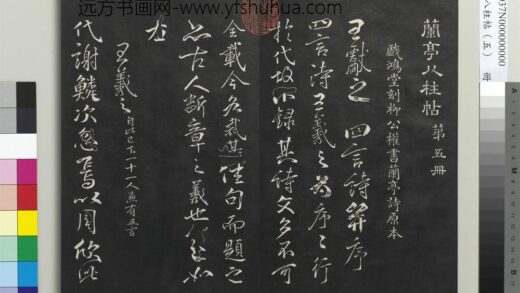 远方书画网-yfshuhua.com
037N00000000
八柱帖（五） 冊
蘭亭八柱帖 第五冊
戲鴻堂刻柳公權書蘭亭詩原本
王獻之 四言詩并序
四言詩王羲之為序序行
於代故不錄其詩文多不可
全載今各裁其佳句而題之
亦古人斷章之義也 如
左
王羲之 自此已下一十一人兼有五言
代謝鱗次忽焉以周欣此